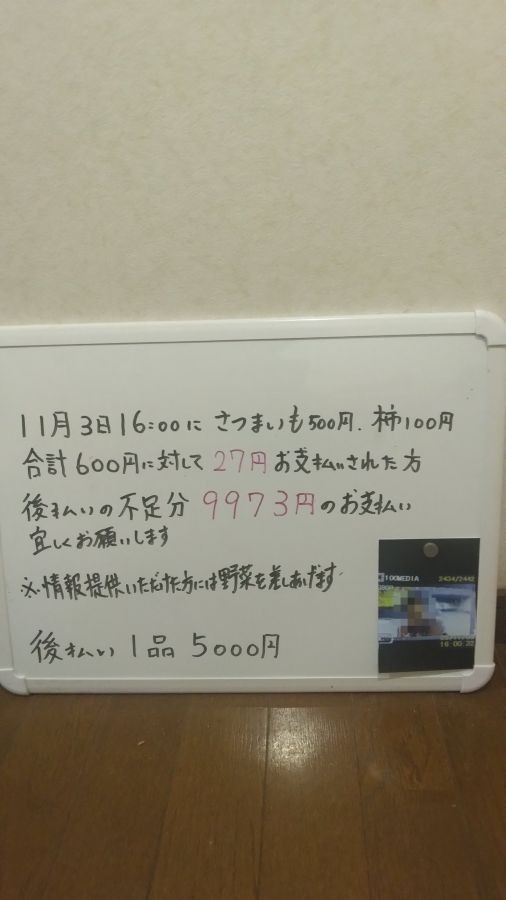 11月3日16:00に さつまいも500円. 柿100円
合計600円に対して 27円 お支払いされた方
後払いの不足分 9973円のお支払い
宜しくお願いします
※情報提供いただけた方には野菜を差しあげます
後払い 1品 5000円
100MEDIA 2434/2442
16:00:22